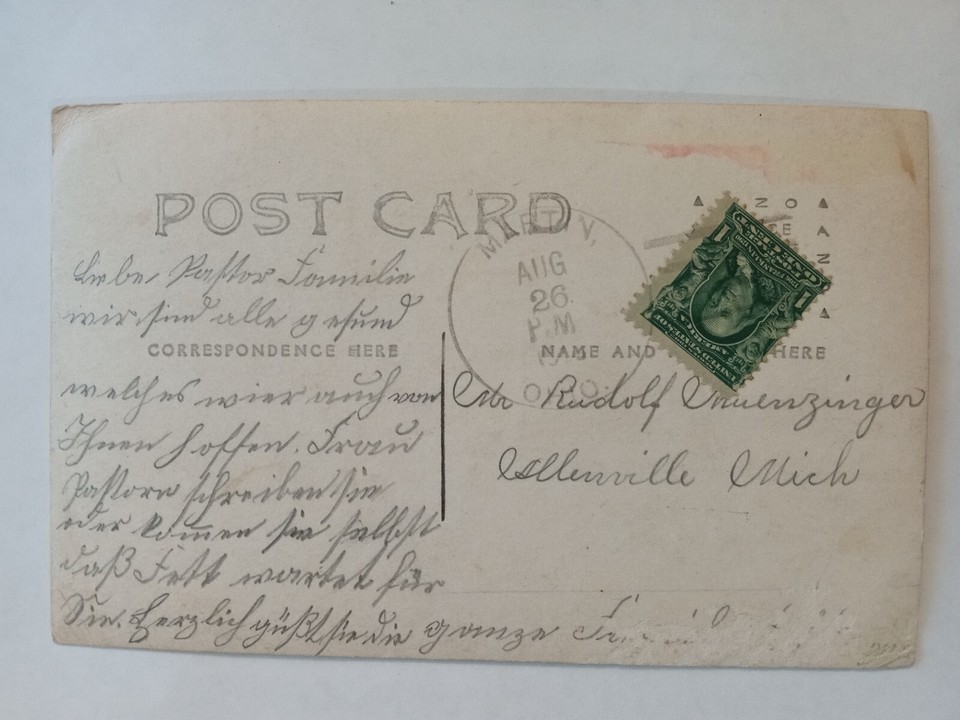 POST CARD
Liebe Pastor Familie
wir sind alle gesund
CORRESPONDENCE HERE
welches wier auch von
Ihnen hoffen. Frau
Pastorn schreiben sie
oder kommen sie selbst
daß Fett wartet für
Sie. Herzlich güßt sie die ganze
MARTIN,
AUG
26
P.M
OHIO.
NAME AND HERE
Mr Rudolf Muenzinger
Allenville Mich
1
1